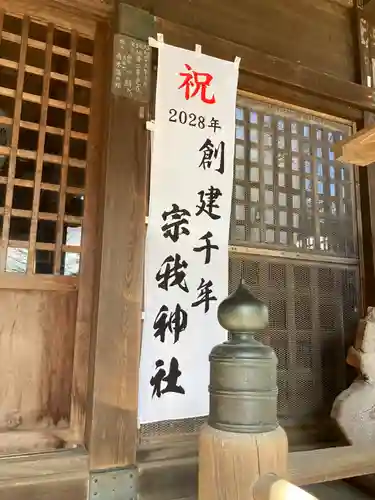 祝
2028年
創建千年
宗我神社